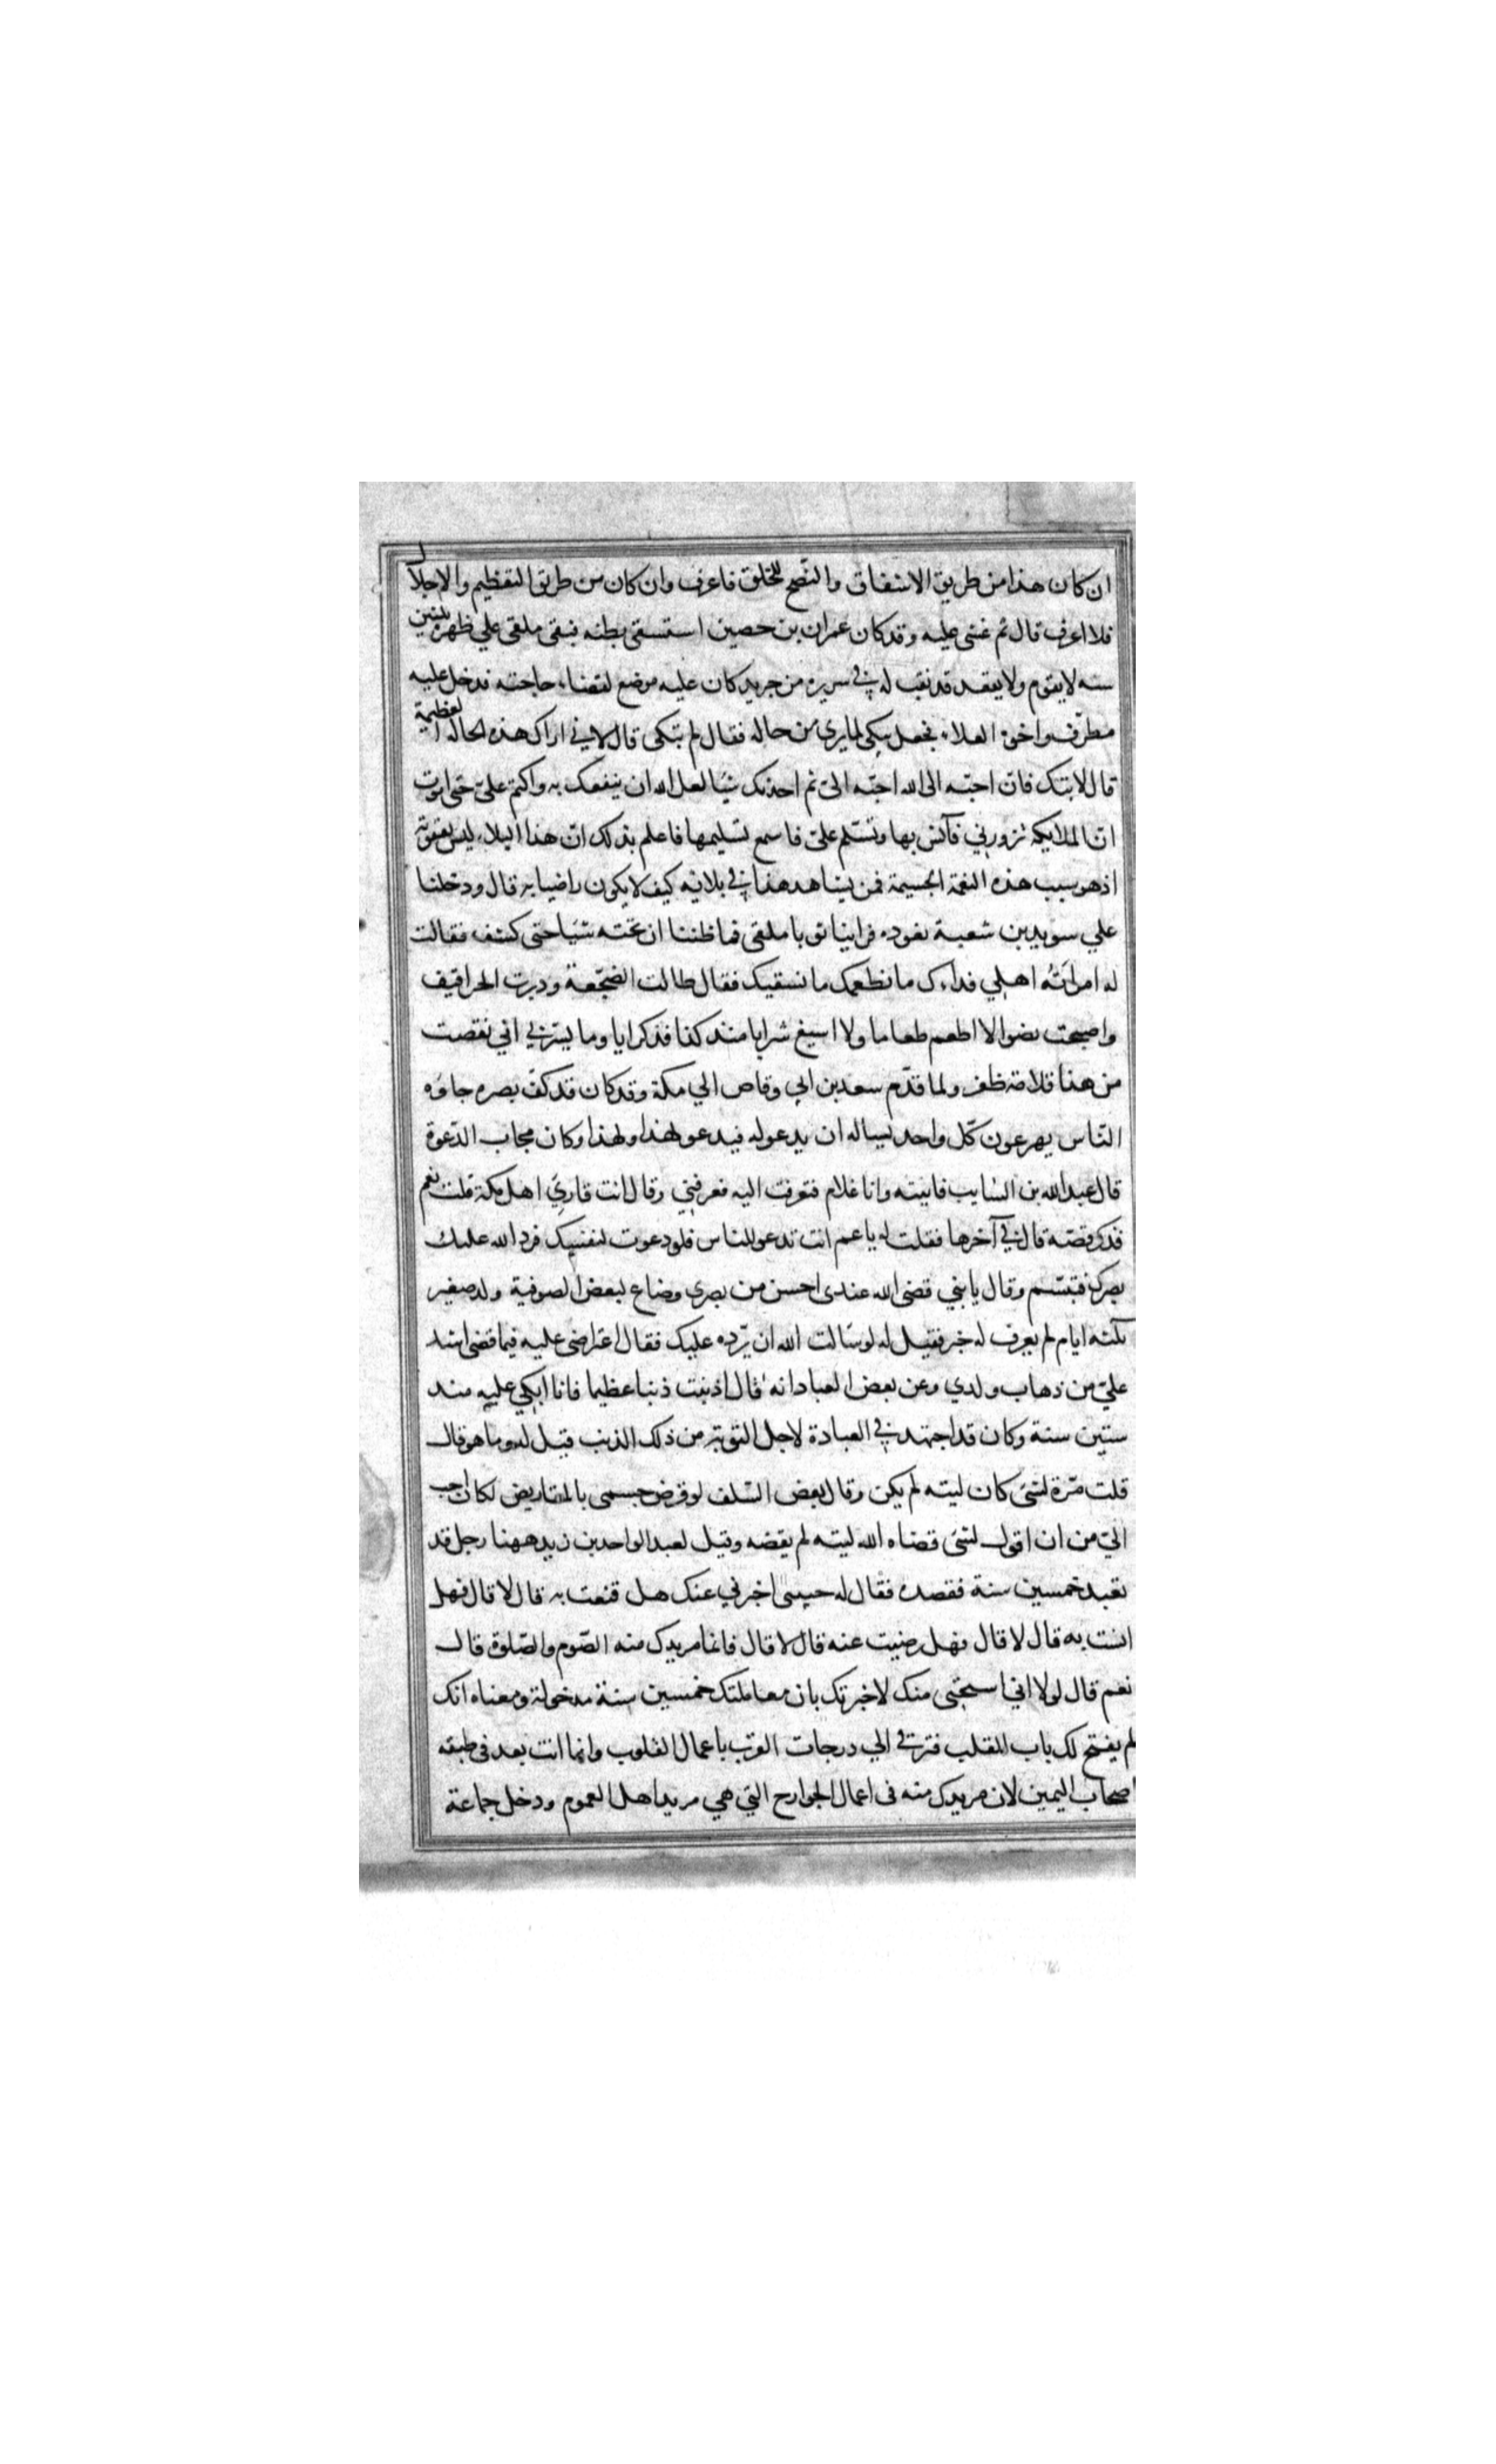 ان كان هذا من طريق الاشفاق والنّصح للخلق فاعرف وان كان من طريق التعظيم والاجلال
فلا اعرف قال ثم غشى عليه وقد كان عمران بن حصين استسقى بطنه فبقى ملقى علي ظهره ثلثين
سنه لا يقوم ولا يقعد قد نقب له في سريره من جريد كان عليه موضع لقضاء حاجته فدخل عليه
مطرّف واخوه العلاء فجعل يبكى لما يرى من حاله فقال لم تبكى قال لاني اراك هذه الحاله العظيمة
قال لا تبك فان احبّه الى الله احبّه الىّ ثم احدثك شيًا لعل الله ان ينفعك به واكتم علىّ حتى اموت
انّ الملايكة تزورني فآنس بها وتسّلم علىّ فاسمع تسليمها فاعلم بذلك انّ هذا البلاء ليس بعقوبة
اذ هو سبب هذه النعمة الجسيمة فمن يشاهد هذا في بلائه كيف لا يكون راضيا به قال ودخلنا
علي سويد بن شعبة نعوده فراينا ثوبا ملقى فما ظننا ان تحته شيَاحتى كشف فقالت
له امراَتُه اهلي فداءك ما نطعمك ما نسقيك فقال طالت الضّجعة ودبرت الحراقيف
واصبحت نضوا لا اطعم طعاما ولا اسيغ شرابا منذ كذا فذكر اياما وما يسّرني اني نقصت
من هذا قلامة ظفر ولما قدّم سعد بن ابي وقاص الي مكة وقد كان قد كفّ بصره جاؤه
النّاس يهرعون كّل واحد يساله ان يدعو له فيدعو لهذا ولهذا وكان مجاب الدّعوة
قال عبد الله بن السّايب فاتيته وانا غلام فتعرفت اليه فعرفني وقال انت قارئ اهل مكة قلت نعم
فذكر قصّه قال في آخرها فقلت له يا عم انت تدعو للناس فلو دعوت لنفسك فرد الله عليك
بصرك فتبسّم وقال يا بني قضى الله عندى احسن من بصرى وضاع لبعض الصوفية ولد صغير
ثلثه ايام لم يعرف له خبر فقيل له لو سَالت الله ان يرّده عليك فقال اعتراضى عليه فيما قضى اشد
علىّ من ذهاب ولدي وعن بعض العباد انه قال اذنبت ذنبا عظيما فانا ابكي عليه منذ
ستين سنة وكان قد اجتهد في العبادة لاجل التوبة من ذلك الذنب قيل له وما هو قال
قلت مّرة لشئ كان ليته لم يكن وقال بعض السّلف لو قرض جسمى بالمقاريض لكان احب
الىّ من ان اقول لشئ قضاه الله ليته لم يقضه وقيل لعبد الواحد بن زيد ههنا رجل قد
تعبد خمسين سنة فقصده فقال له حبيبى اخبرني عنك هل قنعت به قال لا قال فهل
انست به قال لا قال فهل رضيت عنه قال لا قال فانما مزيدك منه الصّوم والصّلوة قال
نعم قال لولا اني استحيى منك لاخبرتك بان معاملتك خمسين سنة مدخولة ومعناه انك
لم يفتح لك باب القلب فترتقى الي درجات القرب باعمال القلوب وانما انت بعد فى طبقه
اصحاب اليمين لان مزيدك منه فى اعمال الجوارح التي هي مزيد اهل العموم ودخل جماعة